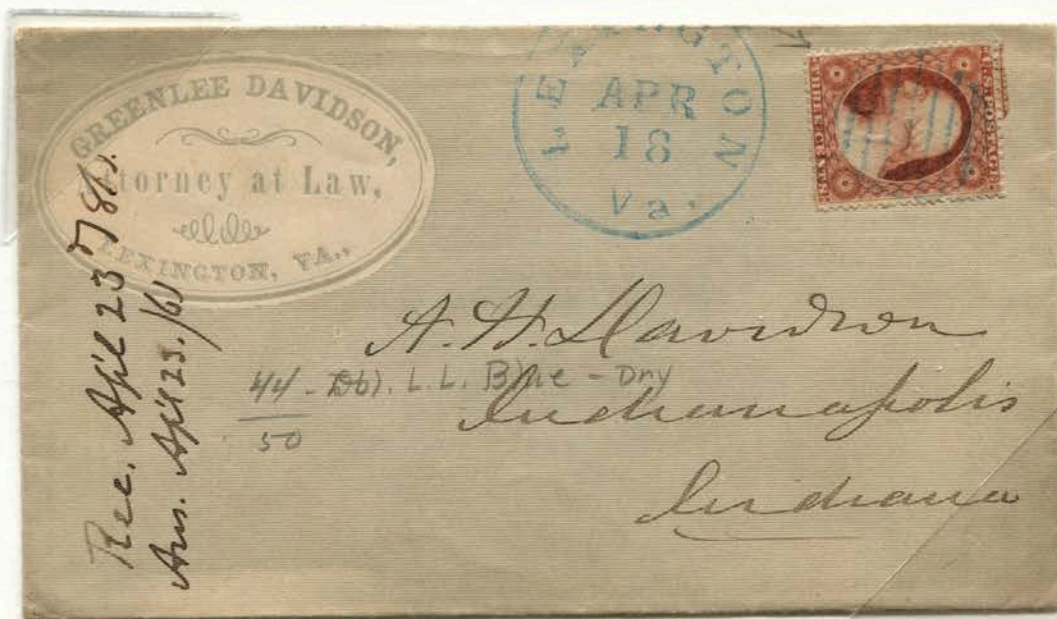 GREENLEE DAVIDSON,
Attorney at Law,
LEXINGTON, VA.,
LEXINGTON
APR
18
Va.
U.S. POSTAGE
A. H. Davidson
Indianapolis
Indiana
44 - Dbl. L.L. Blue - Dry
50
Rec. Apl 23
Ans. Apl 23. /61